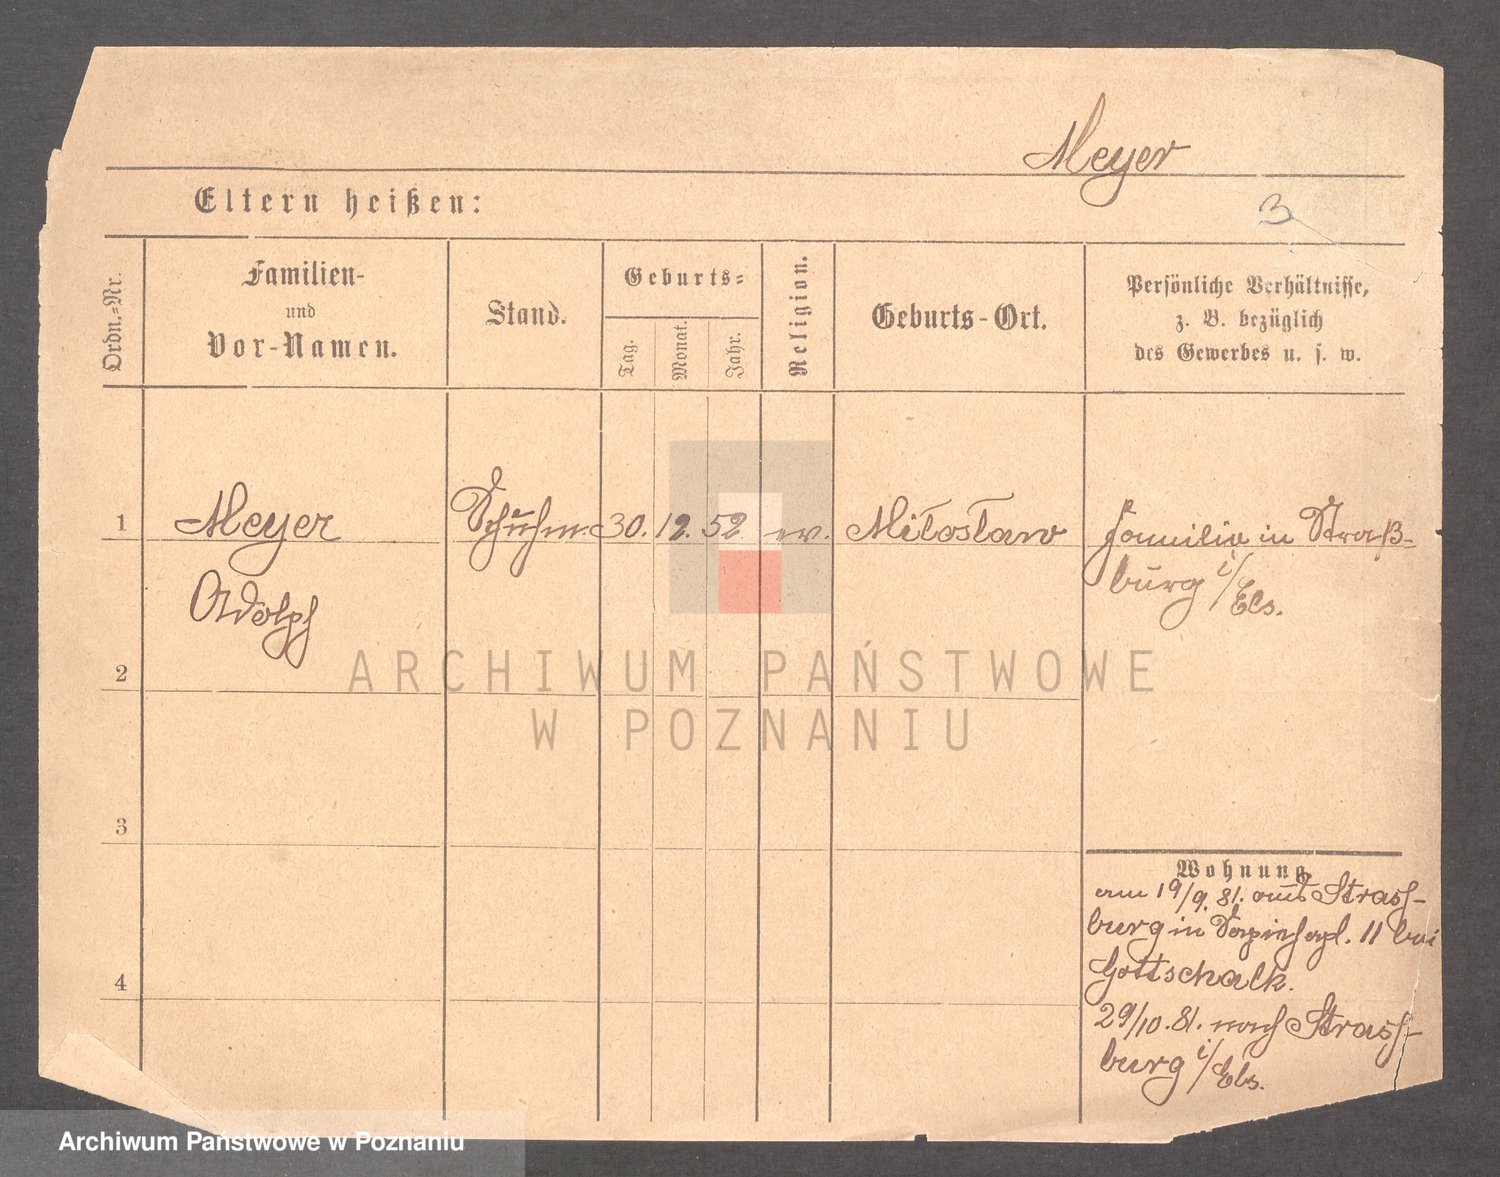 Meyer
Eltern heißen:
3
Ordn.=Nr.
Familien-
und
Vor-Namen.
Stand.
Geburts=
Tag.
Monat.
Jahr.
Religion.
Geburts-Ort.
Persönliche Verhältnisse,
z. B. bezüglich
des Gewerbes u. s. w.
1
Meyer
Adolph
Schuhm.
30.
12.
52
ev.
Miłosław
Familie in Straß-
burg i/Els.
2
3
4
Wohnung.
am 19/9. 81. aus Strass-
burg in Sapiehapl. 11 bei
Gottschalk.
29/10. 81. nach Strass-
burg i/Els.
ARCHIWUM PAŃSTWOWE
W POZNANIU
Archiwum Państwowe w Poznaniu